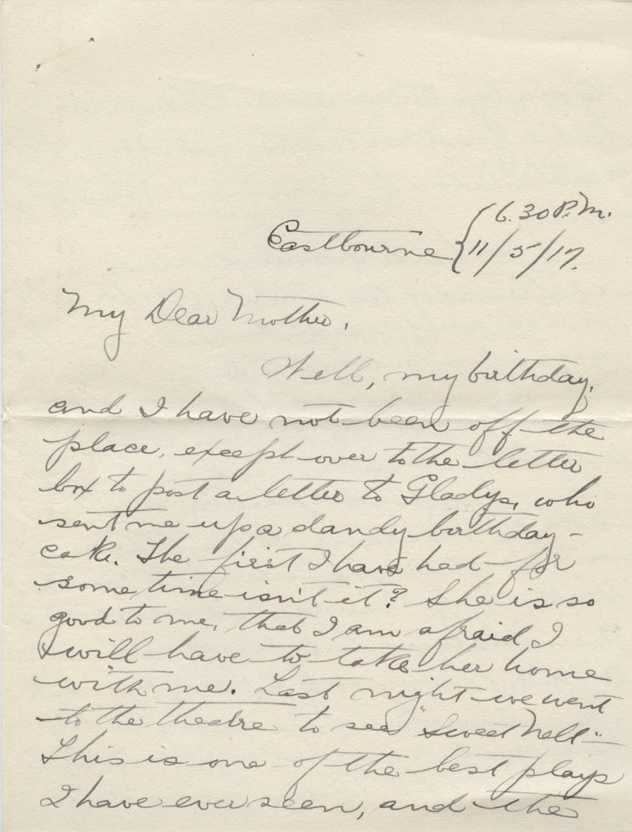 6.30 P.M.
Eastbourne 11/5/17.
My Dear Mother,
Well, my birthday,
and I have not been off the
place, except over to the letter
box to post a letter to Gladys, who
sent me up a dandy birthday-
cake. The first I have had for
some time isn't it? She is so
good to me, that I am afraid I
will have to take her home
with me. Last night we went
to the theatre to see "Sweet Nell"
This is one of the best plays
I have ever seen, and the